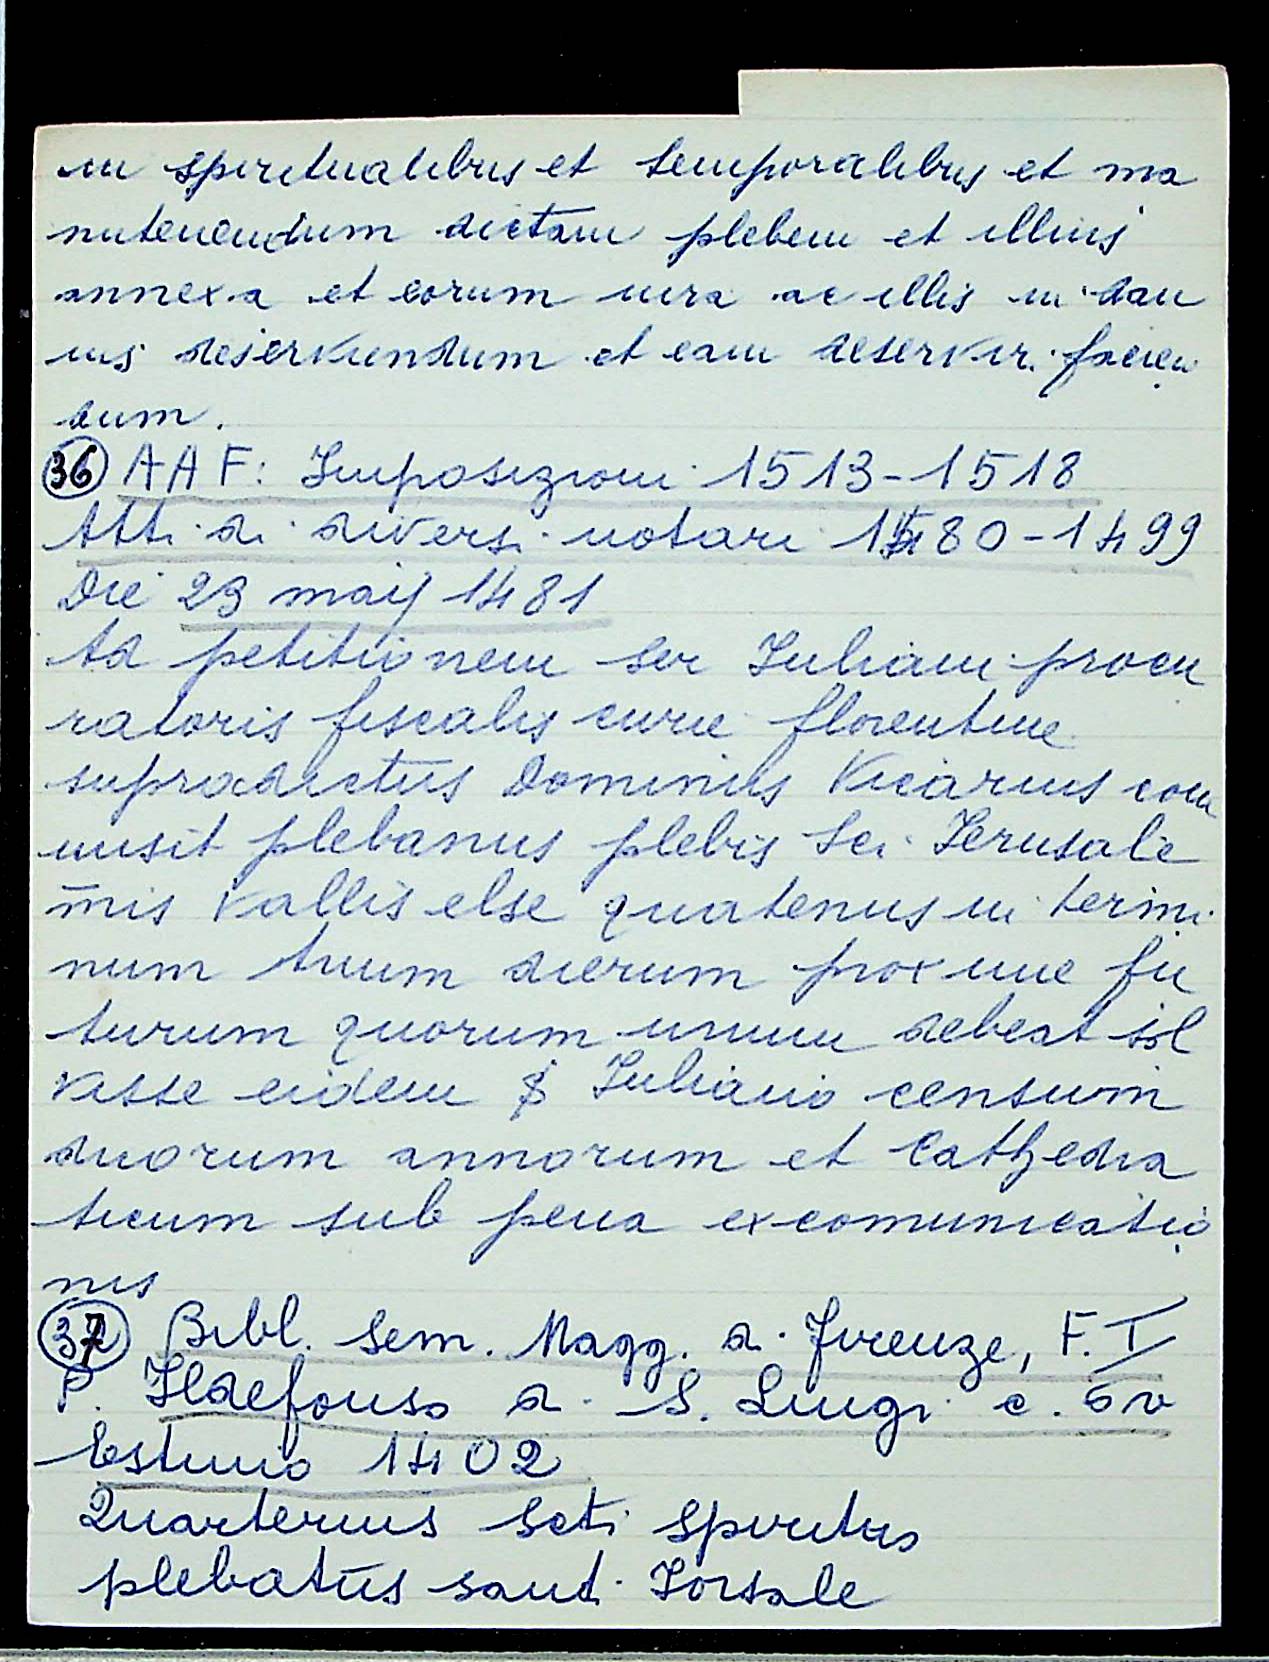 in spiritualibus et temporalibus et ma
nutenendum dictam plebem et illius
annexa et eorum iura ac illis in divi
nis deserviendum et eam deservir. facien
dum.
36 AAF: Imposizioni 1513-1518
Atti di diversi notari 1480-1499
Die 23 maij 1481
Ad petitionem ser Iuliani procu
ratoris fiscalis curie florentine
supradictus Dominus Vicarius com
misit plebanus plebis Sci Ierusale
mis Vallis else quatenus in termi
num trium dierum proxime fu
turum quorum unum debeat sol
visse eidem S Iuliano censum
duorum annorum et Cathedra
ticum sub pena excomunicatio
nis
37 Bibl. Sem. Magg. di Firenze, F. I
P. Ildefonso di S. Luigi c. 6v
Estimo 1402
Quarterius Scti Spiritus
plebatus sancti Iorsale